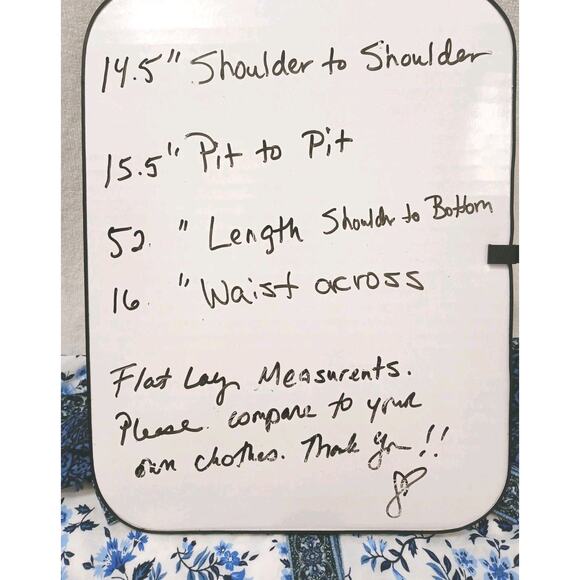 14.5" Shoulder to Shoulder
15.5" Pit to Pit
52. " Length Shouldr to Bottom
16. " Waist across
Flat Lay Measurents.
Please compare to your
own clothes. Thank you!!